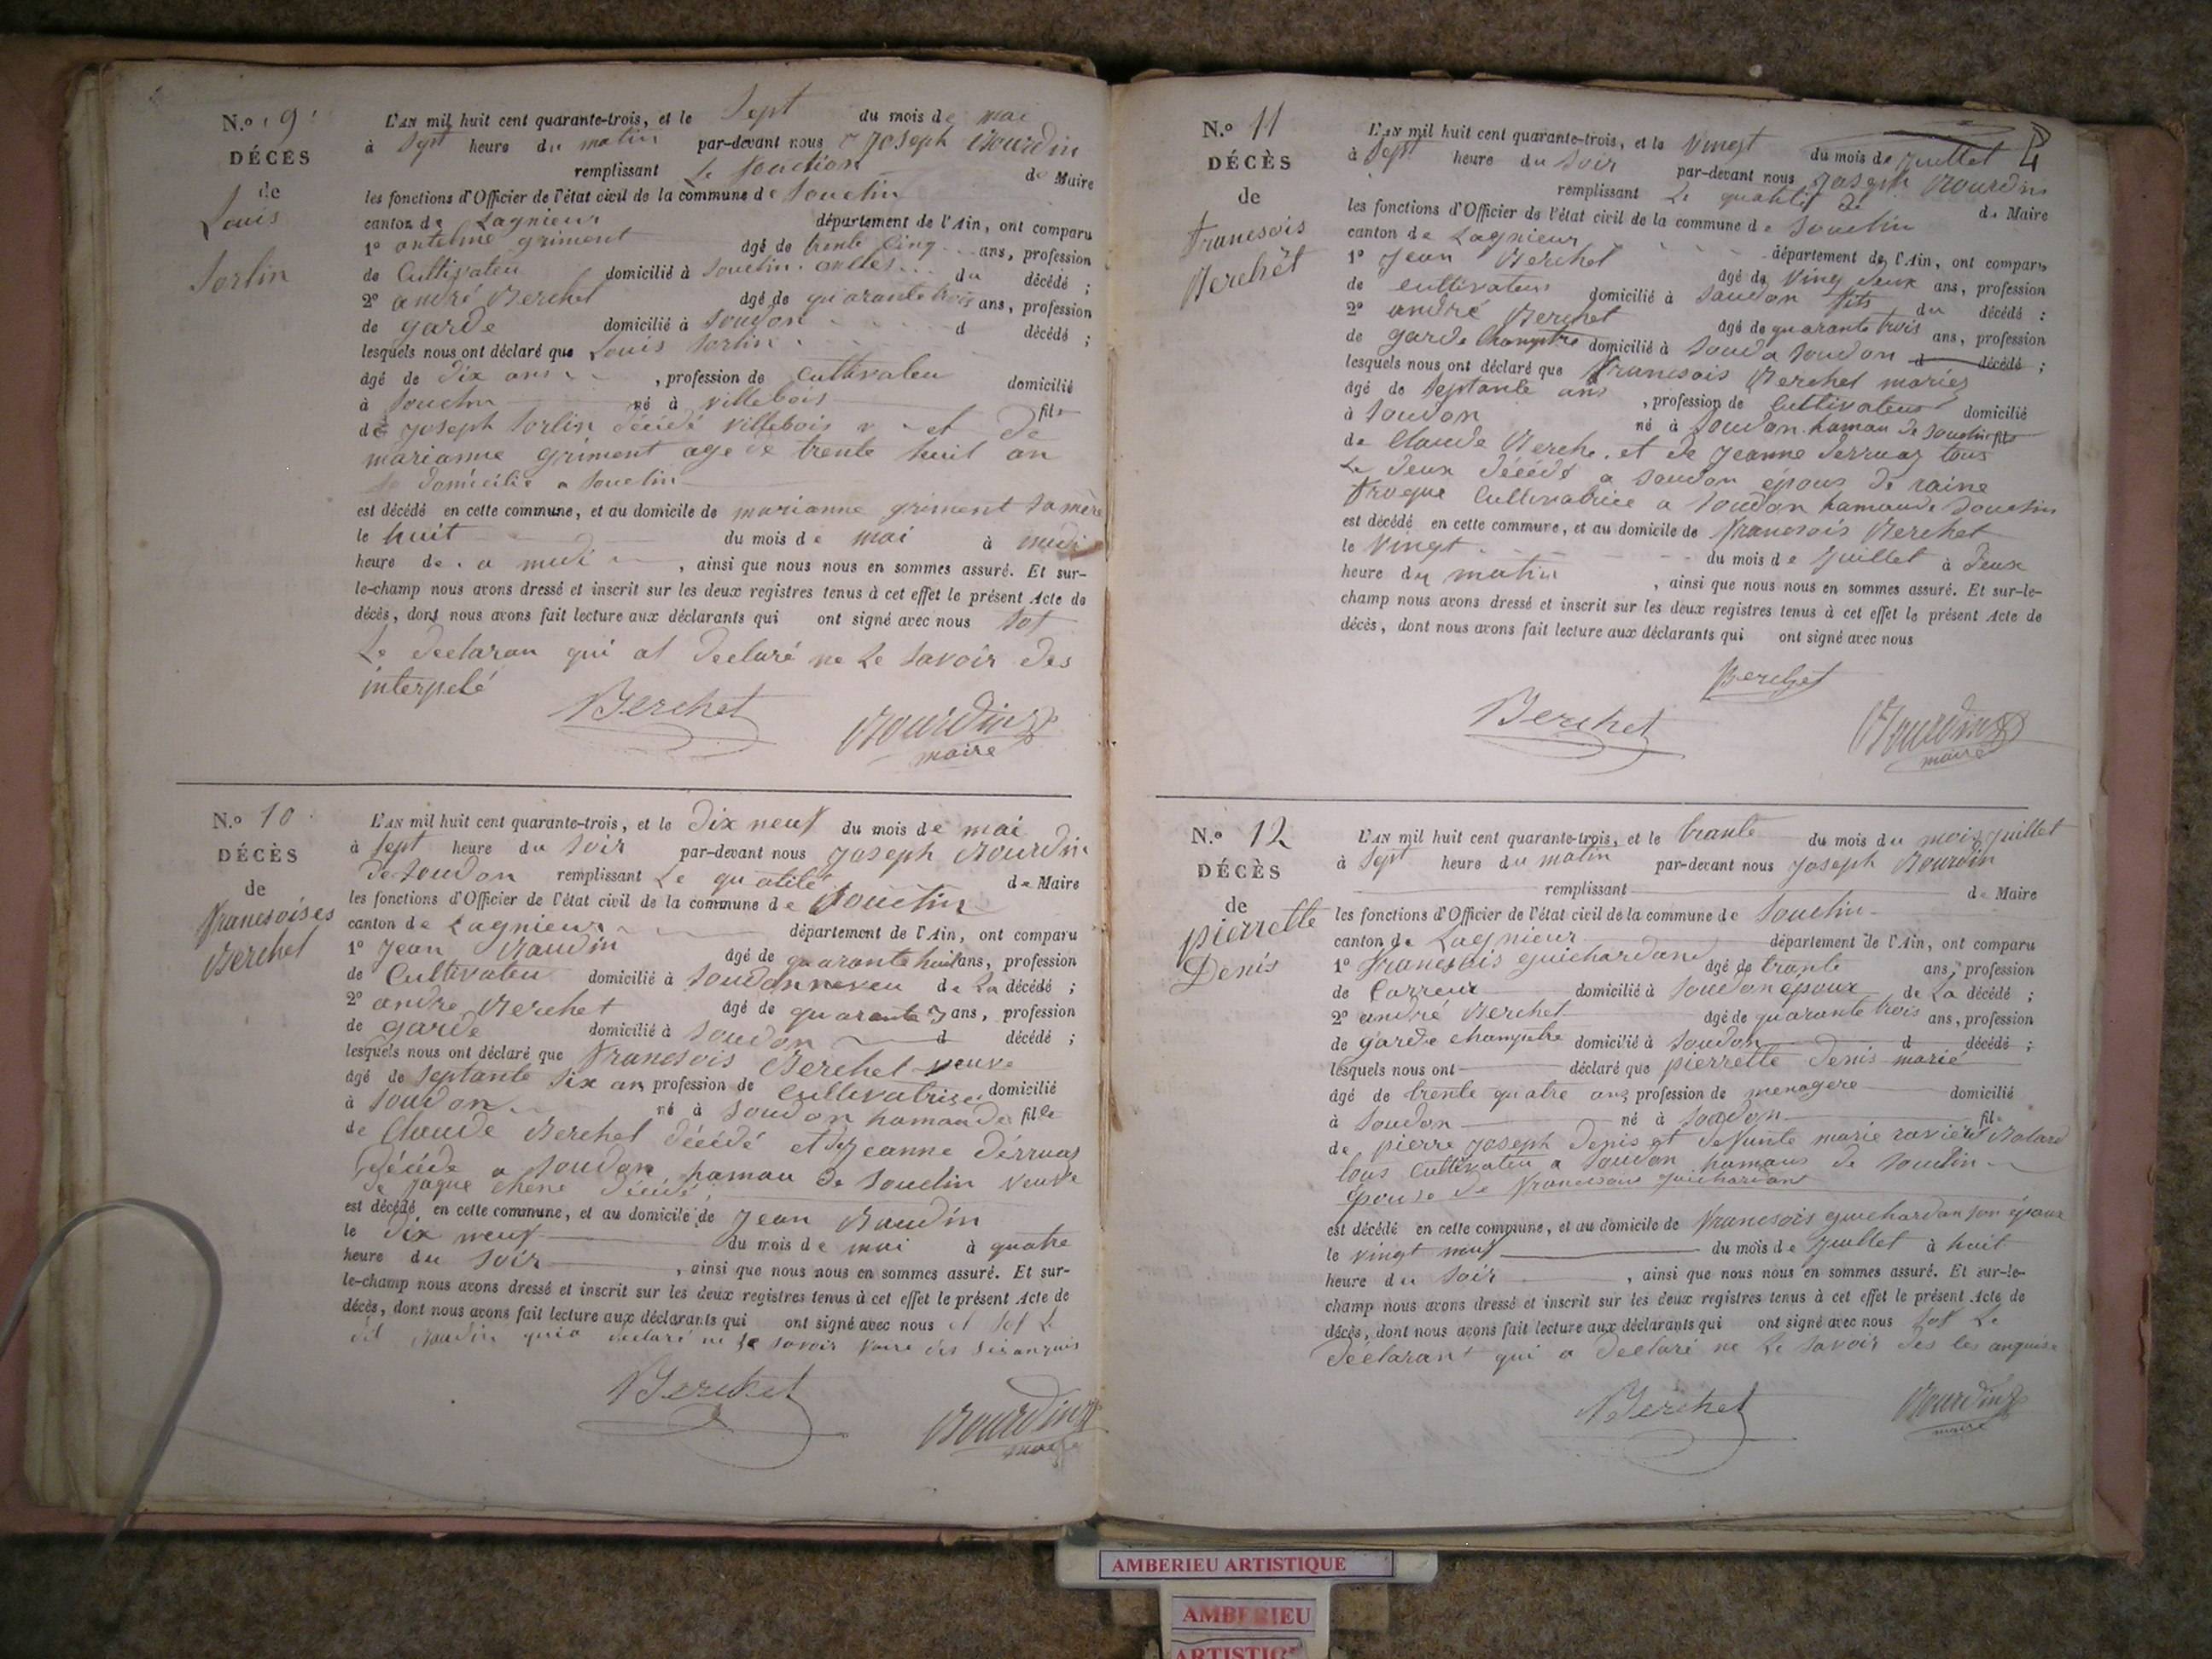 N.º 9
DÉCÈS
de
Louis
Sorlin
L'AN mil huit cent quarante-trois, et le Sept du mois de mai
à Sept heure du matin par-devant nous Joseph Bourdin
remplissant Le fonction de Maire
les fonctions d'Officier de l'état civil de la commune de Souclin
canton de Lagnieur département de l'Ain, ont comparu
1º antelme griment âgé de trente Cinq ans, profession
de Cultivateu domicilié à Souclin du décédé ;
2º andré Berchet âgé de quarante trois ans, profession
de garde domicilié à Soudon d décédé ;
lesquels nous ont déclaré que Louis Sorlin
âgé de dix ans , profession de Cultivateu domicilié
à Souclin né à villebois fils
de Joseph Sorlin décédé villebois et de
marianne griment age de trente huit an
domicilie a Souclin
est décédé en cette commune, et au domicile de marianne griment Sa mère
le huit du mois de mai à midi
heure de a midi , ainsi que nous nous en sommes assuré. Et sur-
le-champ nous avons dressé et inscrit sur les deux registres tenus à cet effet le présent Acte de
décès, dont nous avons fait lecture aux déclarants qui ont signé avec nous Sof
Le declaran qui at declaré ne Le Savoir des
interpelé
Berchet Bourdin
maire
N.º 10
DÉCÈS
de
francsoises
Berchet
L'AN mil huit cent quarante-trois, et le dix neuf du mois de mai
à Sept heure du Soir par-devant nous Joseph Bourdin
de Soudon remplissant Le qualité de Maire
les fonctions d'Officier de l'état civil de la commune de Souclin
canton de Lagnieur département de l'Ain, ont comparu
1º Jean Baudin âgé de quarante huit ans, profession
de Cultivateu domicilié à Soudon neveu de La décédé ;
2º andre Berchet âgé de quarante 3 ans, profession
de garde domicilié à Soudon d décédé ;
lesquels nous ont déclaré que francsois Berchet veuve
âgé de Septante Six an profession de Cultivatrise domicilié
à Soudon né à Soudon hamau de fille
de Claude Berchet décédé et de Jeanne derruaz
décéde a Soudon hamau de Souclin veuve
de Jaque chene décédé
est décédé en cette commune, et au domicile de Jean Baudin
le dix neuf du mois de mai à quatre
heure du Soir , ainsi que nous nous en sommes assuré. Et sur-
le-champ nous avons dressé et inscrit sur les deux registres tenus à cet effet le présent Acte de
décès, dont nous avons fait lecture aux déclarants qui ont signé avec nous et Sof Le
dit Baudin qui a declaré ne Le Savoir
Berchet Bourdin
maire
N.º 11
DÉCÈS
de
francsois
Berchet
L'AN mil huit cent quarante-trois, et le vingt du mois de Juillet
à Sept heure du Soir par-devant nous Joseph Bourdin
remplissant Le qualité de de Maire
les fonctions d'Officier de l'état civil de la commune de Souclin
canton de Lagnieur département de l'Ain, ont comparu
1º Jean Berchet âgé de ving deux ans, profession
de cultivateur domicilié à Soudon fils du décédé ;
2º andré Berchet âgé de quarante trois ans, profession
de garde Champtre domicilié à Soud a Soudon d décédé ;
lesquels nous ont déclaré que francsois Berchet mariez
âgé de Septante ans , profession de Cultivateur domicilié
à Soudon né à Soudon hamau de Souclin fils
de Claude Berche et de Jeanne derruaz tous
Le deux décédé a Soudon épous de raine
froque Cultivatrice a Soudon hamau de Souclin
est décédé en cette commune, et au domicile de francsois Berchet
le vingt du mois de Juillet à deux
heure du matin , ainsi que nous nous en sommes assuré. Et sur-le-
champ nous avons dressé et inscrit sur les deux registres tenus à cet effet le présent Acte de
décès, dont nous avons fait lecture aux déclarants qui ont signé avec nous
Berchet
Berchet Bourdin
maire
N.º 12
DÉCÈS
de
pierrette
Denis
L'AN mil huit cent quarante-trois, et le trante du mois du mois Juillet
à Sept heure du matin par-devant nous Joseph Bourdin
remplissant de Maire
les fonctions d'Officier de l'état civil de la commune de Souclin
canton de Lagnieur département de l'Ain, ont comparu
1º francsois guichardand âgé de trante ans, profession
de Carreur domicilié à Soudon époux de La décédé ;
2º andré Berchet âgé de quarante trois ans, profession
de garde champetre domicilié à Soudon d décédé ;
lesquels nous ont déclaré que pierrette denis marié
âgé de trente quatre ans profession de menagere domicilié
à Soudon né à Soudon file
de pierre Joseph denis et defunte marie Bolard
tous Cultivateu a Soudon hamaus de Souclin
épouse de francsois guichardant
est décédé en cette commune, et au domicile de francsois guichardan Son époux
le vingt neuf du mois de Juillet à huit
heure du Soir , ainsi que nous nous en sommes assuré. Et sur-le-
champ nous avons dressé et inscrit sur les deux registres tenus à cet effet le présent Acte de
décès, dont nous avons fait lecture aux déclarants qui ont signé avec nous Sof Le
déclarant qui a declaré ne Le Savoir des
Berchet Bourdin
maire
AMBERIEU ARTISTIQUE
AMBERIEU
ARTISTIQ